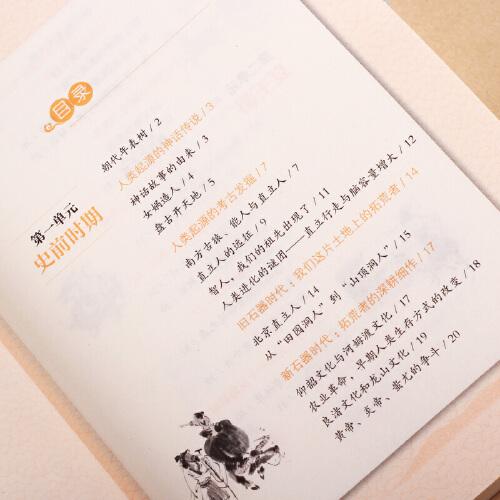 目录
第一单元
史前时期
朝代年表树 / 2
人类起源的神话传说 / 3
神话故事的由来 / 3
女娲造人 / 4
盘古开天地 / 5
人类起源的考古发掘 / 7
南方古猿、能人与直立人 / 7
直立人的远征 / 9
智人，我们的祖先出现了 / 11
人类进化的谜团——直立行走与脑容量增大 / 12
旧石器时代：我们这片土地上的拓荒者 / 14
北京直立人 / 14
从“田园洞人”到“山顶洞人” / 15
新石器时代：拓荒者的深耕细作 / 17
仰韶文化与河姆渡文化 / 17
农业革命，早期人类生存方式的改变 / 18
良渚文化和龙山文化 / 19
黄帝、炎帝、蚩尤的争斗 / 20